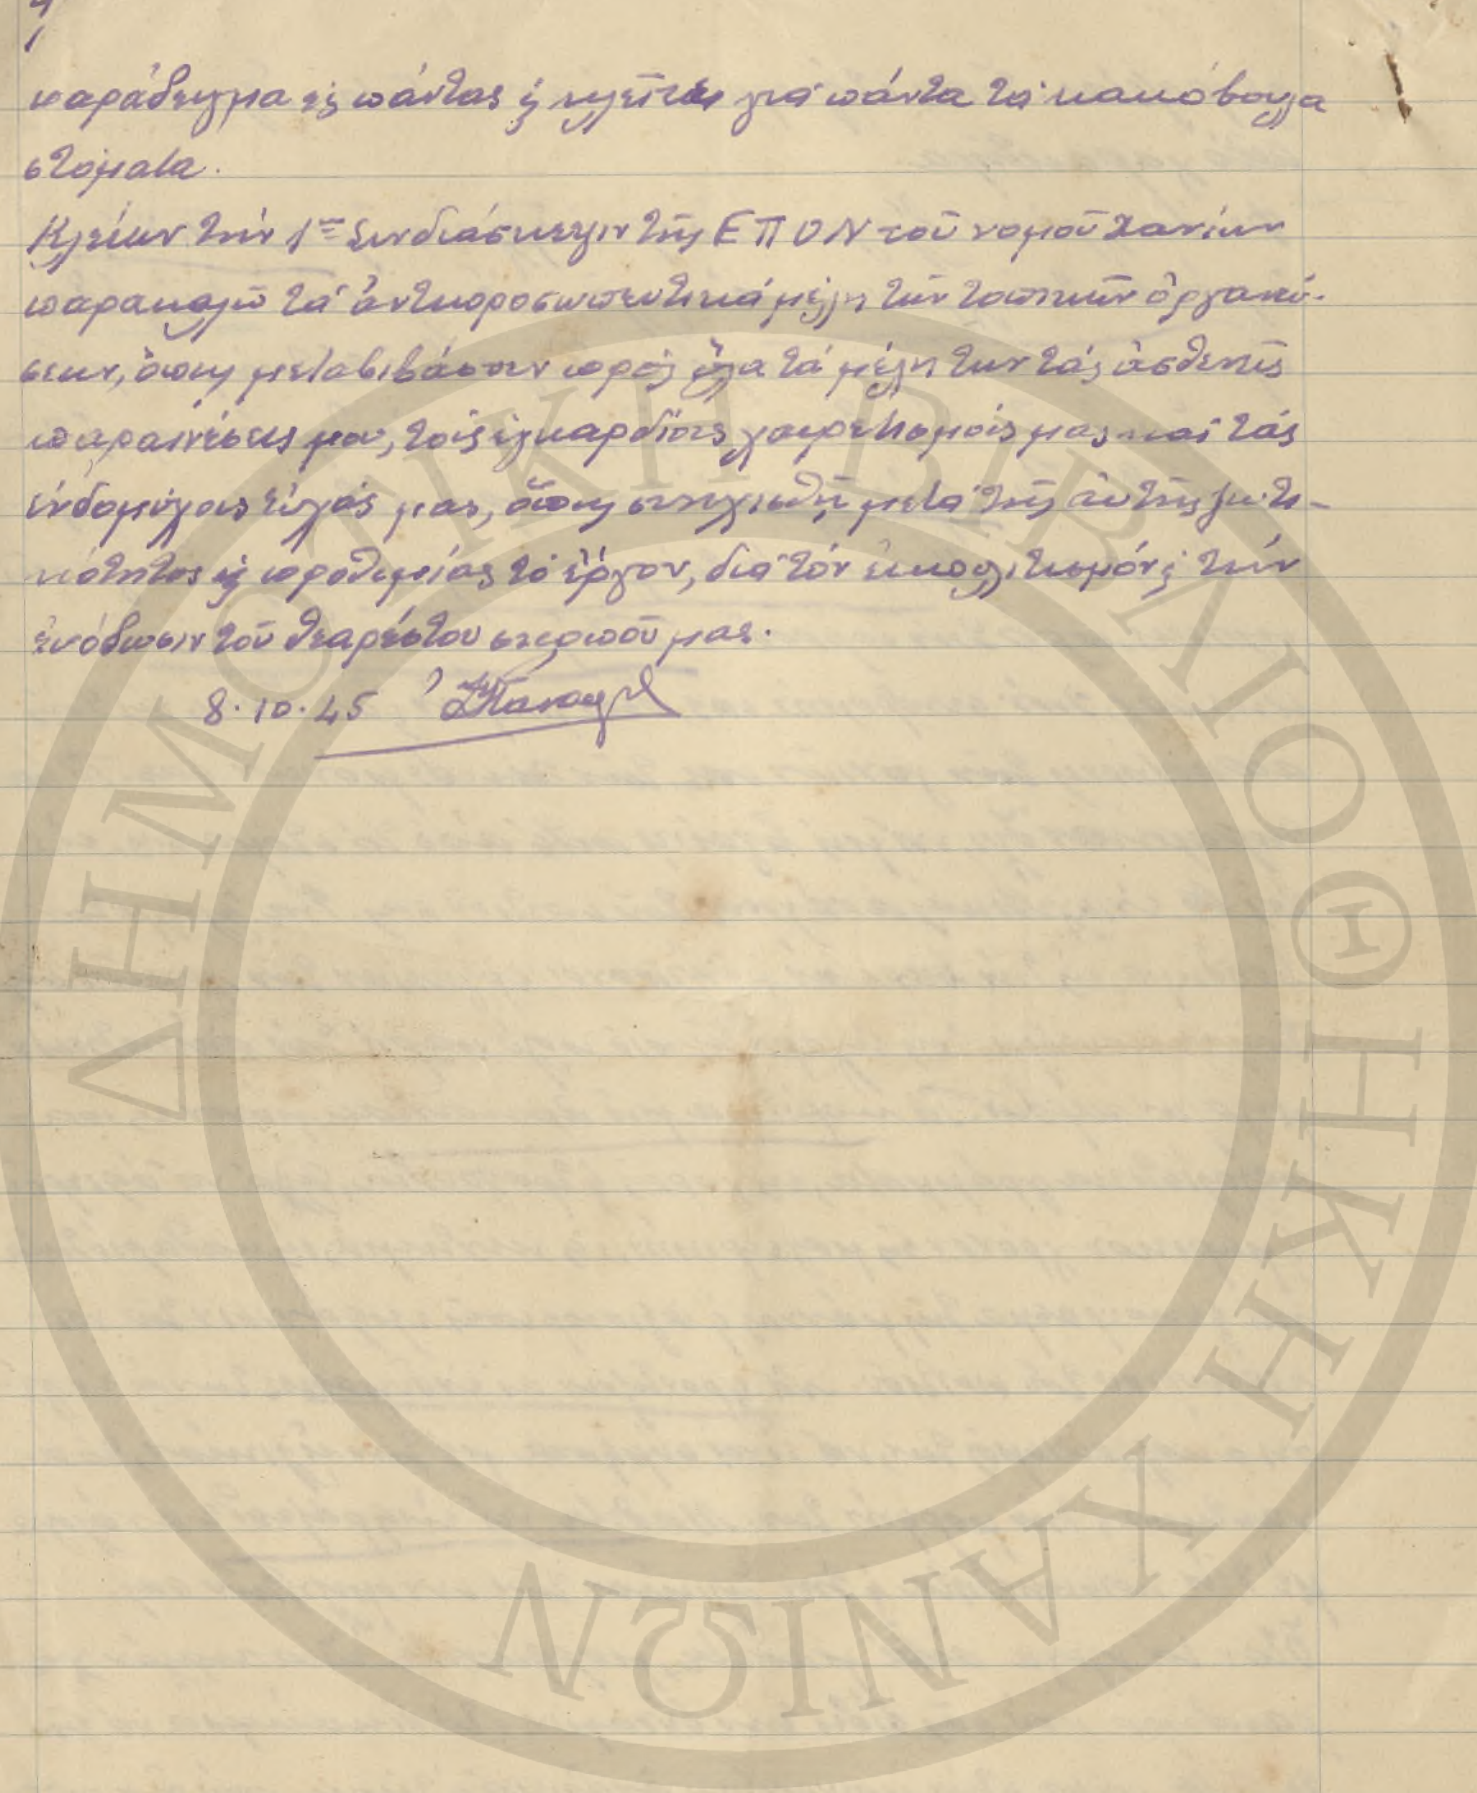 παράδειγμα εἰς πάντας ϗ κλείσῃ γιά πάντα τά κακόβουλα
στόματα.
Κλείων τήν 1ην Συνδιάσκεψιν τῆς ΕΠΟΝ τοῦ νομοῦ Χανίων
παρακαλῶ τά ἀντιπροσωπευτικά μέλη τῶν τοπικῶν ὀργανώ-
σεων, ὅπως μεταβιβάσουν πρός ὅλα τά μέλη των τάς ἀσθενεῖς
παραινέσεις μου, τούς ἐγκαρδίους χαιρετισμούς μας καί τάς
ἐνδομύχους εὐχάς μας, ὅπως συνεχισθῇ μετά τῆς αὐτῆς ζωτι-
κότητος ϗ προθυμίας τό ἔργον, διά τόν ἐκπολιτισμόν ϗ τήν
εὐόδωσιν τοῦ θεαρέστου σκοποῦ μας.
8.10.45
ΔΗΜΟΤΙΚΗ ΒΙΒΛΙΟΘΗΚΗ ΧΑΝΙΩΝ